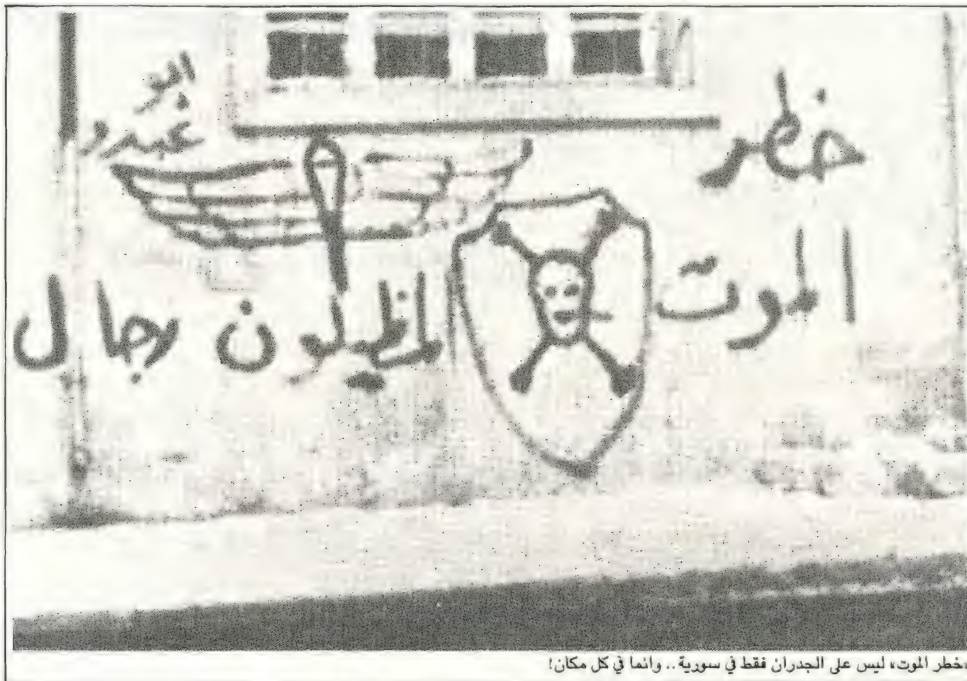 خطر
الموت
ابو
عبدو
المظليون رجال
«خطر الموت» ليس على الجدران فقط في سورية .. وانما في كل مكان!